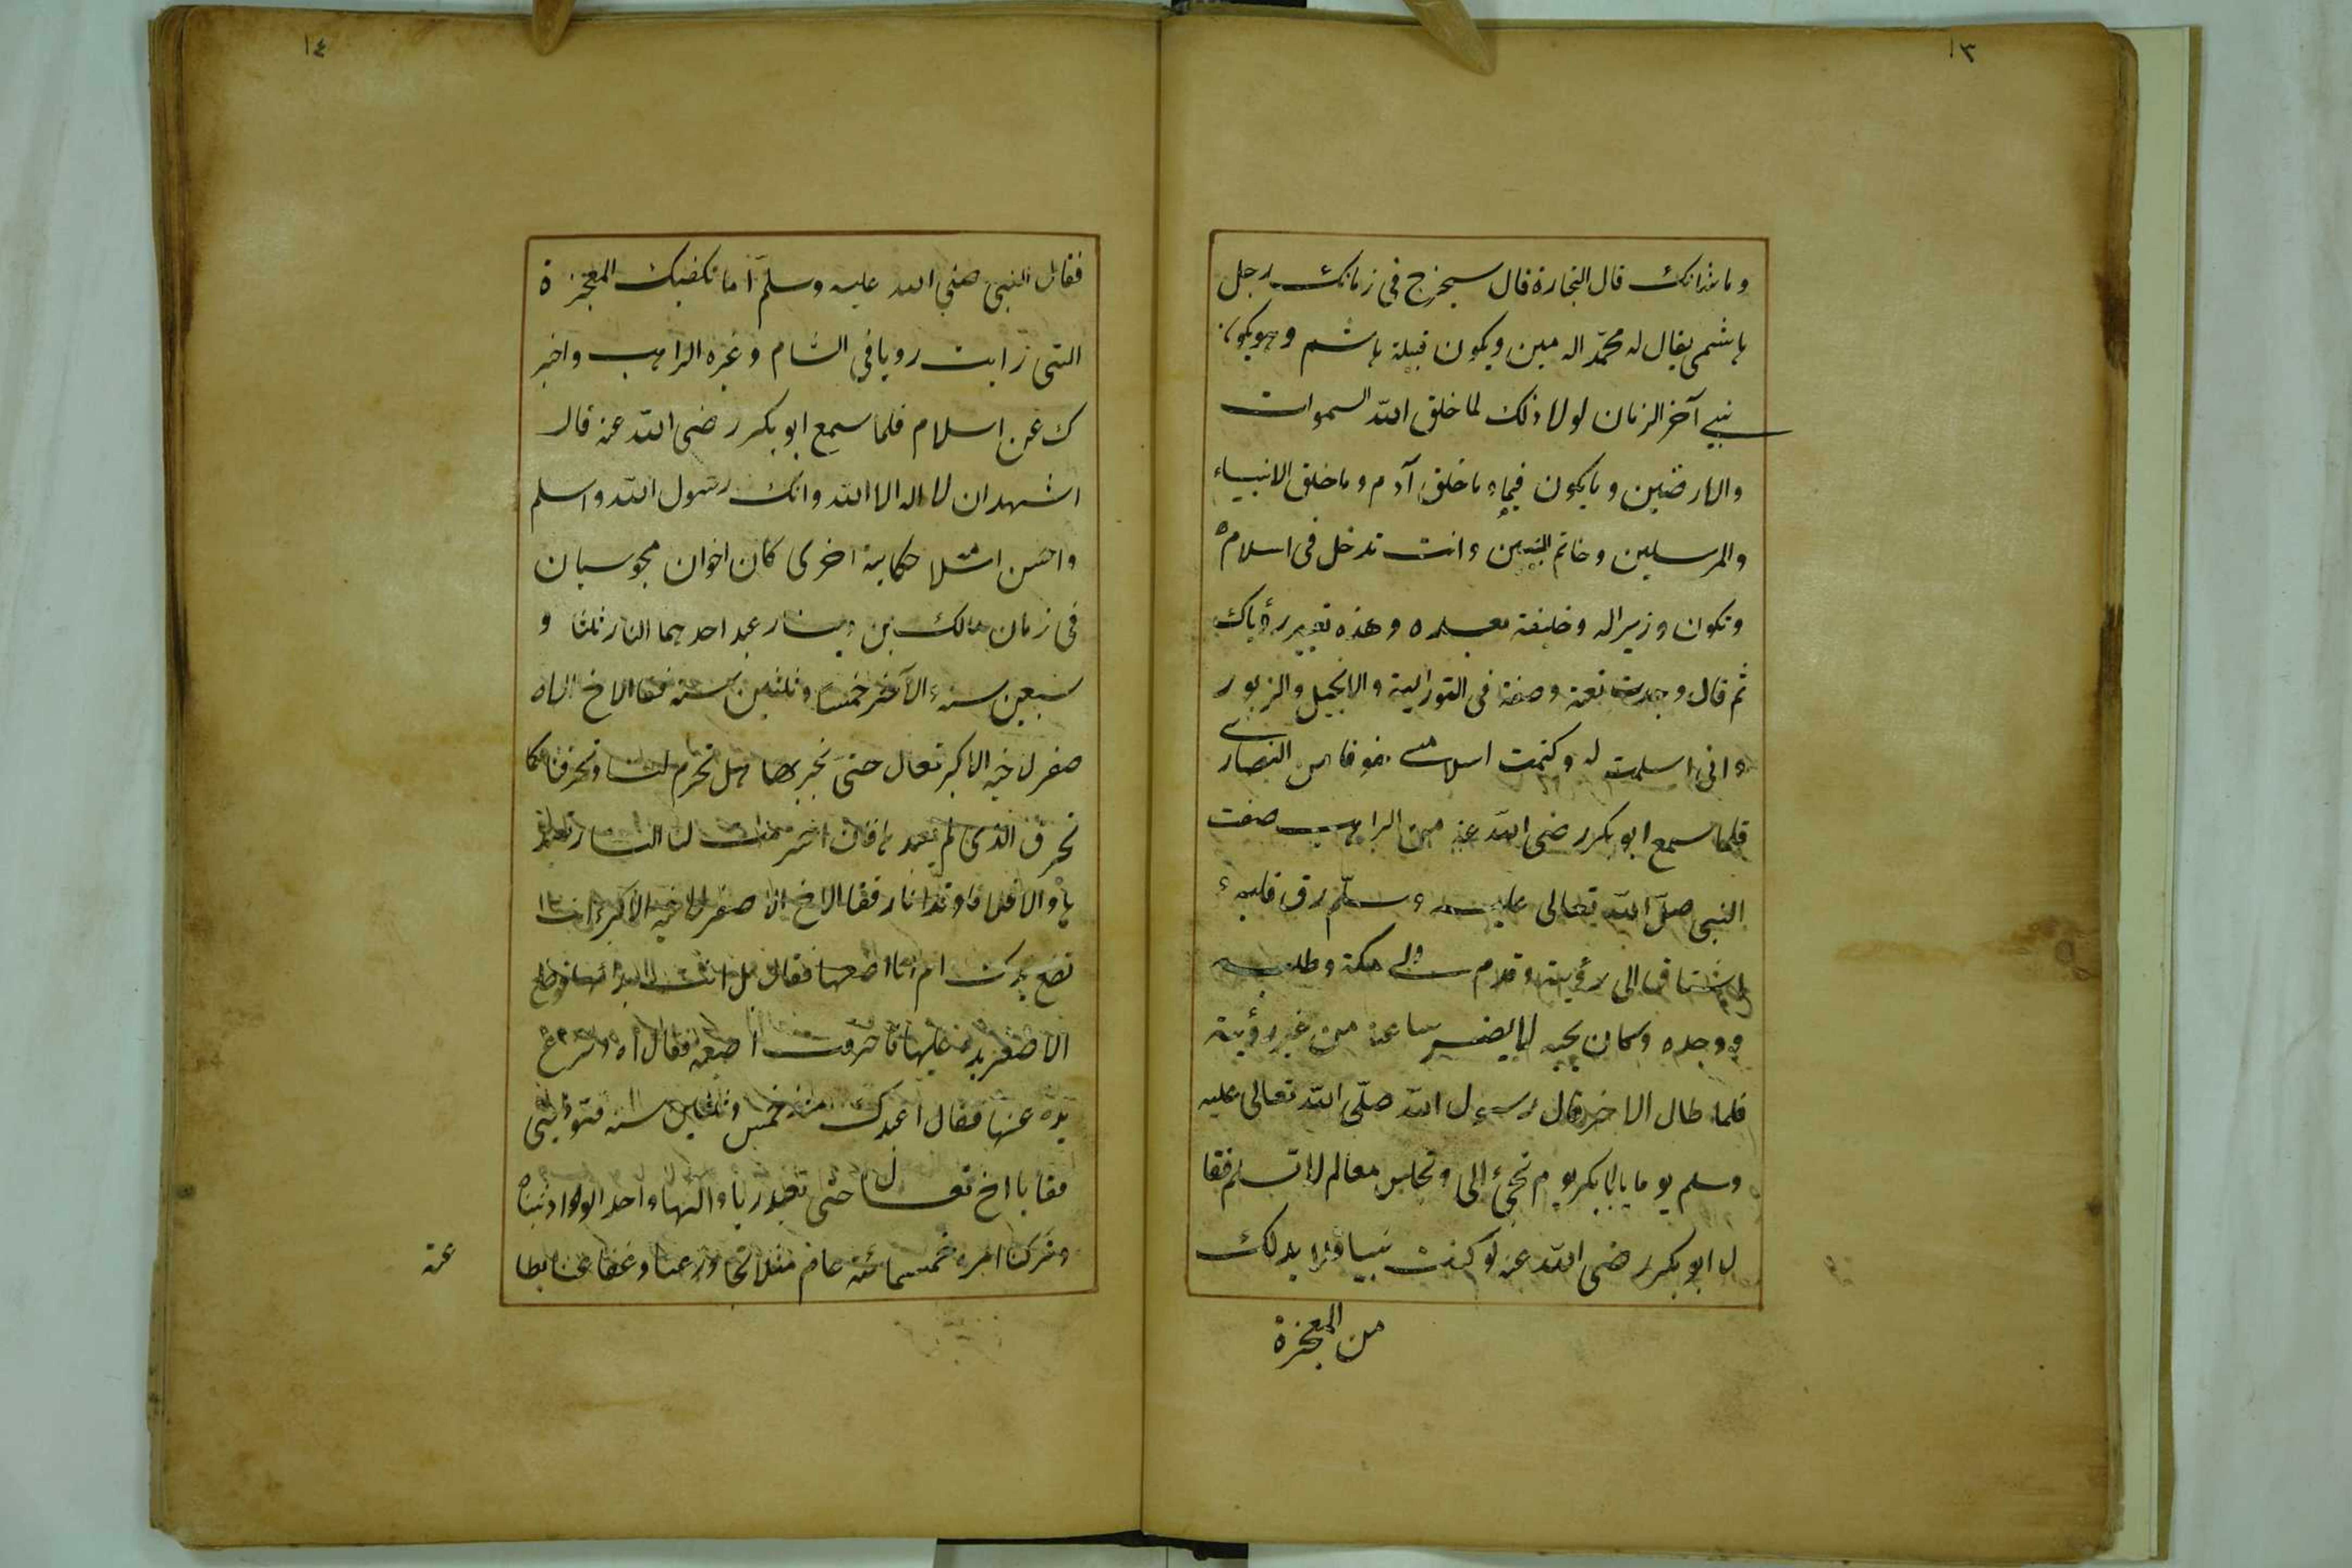 ١٣
وما شانك قال التجارة قال سيخرج في زمانك رجل
هاشمي يقال له محمّد الامين ويكون قبيلة هاشم وهو يكون
نبي آخر الزمان لولا ذلك لما خلق الله السموات
والارضين وما يكون فيها وما خلق آدم وما خلق الانبياء
والمرسلين وخاتم النبين وانت تدخل في اسلامه
وتكون وزيرا له وخليفة بعده وهذه تعبير رؤياك
ثم قال وجدت نعته وصفته في التورالية والانجيل والزبور
واني اسلمت له وكتمت اسلامي خوفا من النصارى
فلما سمع ابو بكر رضى الله عنه من الراهب صفت
النبي صلّ الله تعالى عليه وسلّم رق قلبه و
اشتاق الى رؤيته وقدم الى مكة وطلبه
ووجده وكان يحبه لا يصبر ساعة من غير رؤيته
فلما طال الاخر قال رسول الله صلّى الله تعالى عليه
وسلم يوما يا ابا بكر يوم تجئ الى وتجلس معي لم لا تسلم فقا
له ابو بكر رضى الله عنه لو كنت نبيا ولا بد لك
من المعجزة
١٤
فقال النبي صلي الله عليه وسلّم اما تكفيك المعجزة
التي رايت رويا في الشام وعبره الراهب واخبر
ك عن اسلام فلما سمع ابو بكر رضى الله عنه قال
اشهد ان لا اله الا الله وانك رسول الله واسلم
واحسن اسلا مه حكاية اخرى كان اخوان مجوسيان
في زمان مالك بن دينار عبد احديهما النار ثلثا و
سبعين سنة والآخر خمسا وثلثين سنة فقا الاخ الا
صغر لاخيه الاكبر تعال حتى نجربها هل تحرم لنا وتحرقنا كما
تحرق الذي لم يعبد ها فان احرمت لنا النار نعبد
ها والا فلا فاوقدا نارا فقا الاخ الا صغر لاخيه الاكبر انت
تضع يدك ام انا اضعها فقال بل انت فوضع
الاصغر يده عليها فاحرقت اصبعه فقال اه ونزع
يده عنها فقال اعبدك منذ خمس وثلثين سنة فتوذيني
فقا يا اخ تعال حتى نعبد ربا والها واحدا لو اذنبناه
وتركنا امره خمسمائة عام مثلا تجاوز عنا وعفا عنا بطا
عة